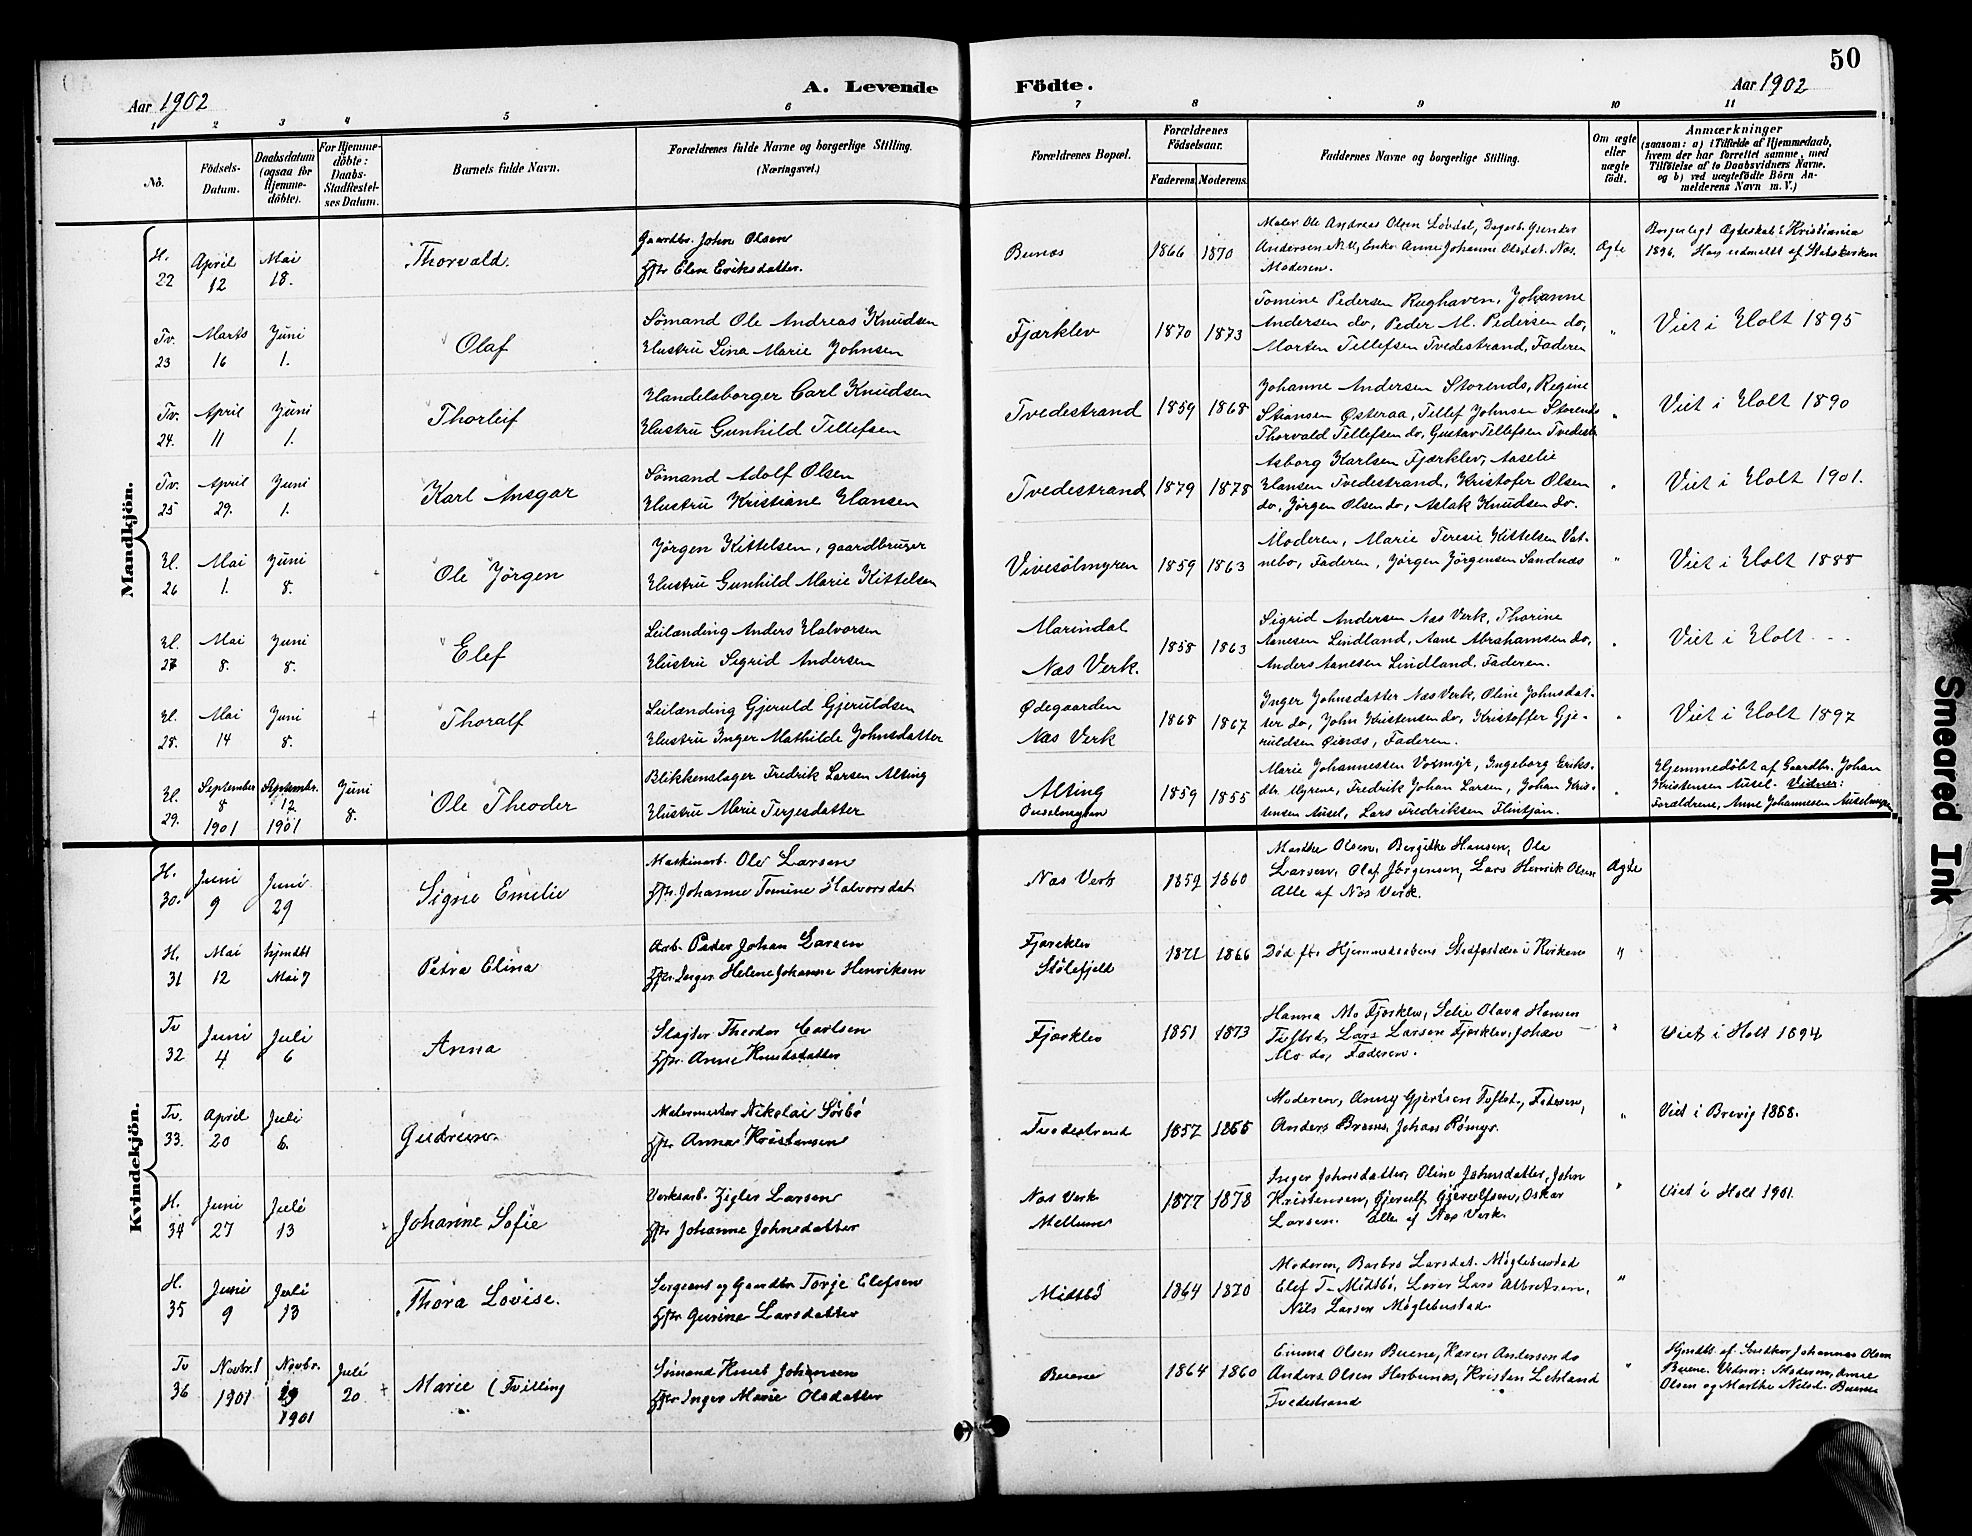 50
Aar 1902
A. Levende
Födte.
Aar 1902
1 2 3 4 5 6 7 8 9 10 11
No.
Födsels-
Datum.
Daabsdatum
(ogsaa for
Hjemme-
döbte).
For Hjemme-
döbte:
Daabs-
Stadfæstel-
ses Datum.
Barnets fulde Navn.
Forældrenes fulde Navne og borgerlige Stilling.
(Næringsvei.)
Forældrenes Bopæl.
Forældrenes
Födselsaar.
Faderens. Moderens.
Faddernes Navne og borgerlige Stilling.
Om ægte
eller
uægte
födt.
Anmærkninger
(saasom: a) i Tilfælde af Hjemmedaab,
hvem der har forrettet samme, med
Tilföielse af to Daabsvidners Navne.
og b) ved uægtefödte Börn An-
melderens Navn m. V.)
Mandkjön.
H. 22 April 12 Mai 18. Thorvald.
Gaardbr. John Olsen
Hstr Elen Eriksdatter.
Bunæs 1866 1870
Maler Ole Andreas Olsen Løvdal,
Andersen N.V, Enke Anne Johanne Olsdat. Næs.
Moderen.
Ægte
Borgerligt Ægteskab i Kristiania
1896. Hans udmeldt af Statskirken
Tv. 23 Marts 16 Juni 1. Olaf
Sömand Ole Andreas Knudsen
Hustru Lina Marie Johnsen
Fjærklev 1870 1873
Tomine Pedersen Rughaven, Johanne
Andersen do, Peder M. Pedersen do,
Morten Tellefsen Tvedestrand, Faderen
"
Viet i Holt 1895
Tv. 24. April 11 Juni 1. Thorleif
Handelsborger Carl Knudsen
Hustru Gunhild Tellefsen
Tvedestrand 1859 1868
Johanne Andersen Storends, Regine
Stiansen Østeraa, Tellef Johnsen Storends
Thorvald Tellefsen do, Gustav Tellefsen Tvedest
"
Viet i Holt 1890
Tv. 25 April 29. Juni 1. Karl Ansgar
Sömand Adolf Olsen
Hustru Kristiane Hansen
Tvedestrand 1879 1878
Asborg Karlsen Fjærklev, Aaselie
Hansen Tvedestrand, Kristofer Olsen
do, Jørgen Olsen do, Aslak Knudsen do.
"
Viet i Holt 1901.
H. 26 Mai 1. Juni 8. Ole Jörgen
Jörgen Kittelsen, gaardbruger
Hustru Gunhild Marie Kittelsen
Vivesölmyren 1859 1863
Moderen, Marie Teresie Kittelsen Vat-
nebo, Faderen, Jörgen Jörgensen Sandnæs
"
Viet i Holt 1888
H. 27 Mai 8. Juni 8. Elef
Leilænding Anders Halvorsen
Hustru Sigrid Andersen
Marindal
Næs Verk. 1858 1863
Sigrid Andersen Næs Verk, Thorine
Aanesen Lindland, Aane Abrahamsen do,
Anders Aanesen Lindland, Faderen.
"
Viet i Holt - - -
H. 28. Mai 14 Juni 8. Thoralf
Leilænding Gjeruld Gjeruldsen
Hustru Inger Mathilde Johnsdatter
Ødegaarden
Næs Verk 1868 1867
Inger Johnsdatter Næs Verk, Oline Johnsdat-
ter do, John Kristensen do, Kristoffer Gje-
ruldsen Øienæs, Faderen.
"
Viet i Holt 1897
H. 29. September 8 1901 Septembr. 12 1901 Juni 8. Ole Theodor
Blikkenslager Fredrik Larsen Alting
Hustru Marie Terjesdatter
Alting
1859 1855
Marie Johannessen Voxmyr, Ingeborg Eriks-
dtr. Myrene, Fredrik Johan Larsen, Johan Kris-
tensen Ausel, Lars Fredriksen Flintjön.
"
Hjemmedöbt af Gaardbr. Johan
Kristensen Ausel. Vidner:
Forældrene, Anne Johannesen Auselmyren
Kvindekjön.
H. 30. Juni 9 Juni 29 Signe Emilie
Maskinarb. Ole Larsen
Hstr. Johanne Tomine Halvorsdat
Næs Verk 1859 1860
Marthe Olsen, Bergithe Hansen, Ole
Larsen, Olaf Jörgensen, Lars Henrik Olsen
Alle af Næs Verk.
Ægte
H. 31 Mai 12 Hjmdbt Mai 7 Petra Elina
Arb. Peder Johan Larsen
Hstr. Inger Helene Johanne Henriksen
Fjæreklev
Stölefjeld 1866
Död før Hjemmedaabens Stadfæstelse i Kirken
"
Tv 32 Juni 4 Juli 6 Anna
Slagter Theodor Carlsen
Hstr. Anne Knudsdatter
Fjærklev 1851 1873
Hanna Mo Fjærklev, Selie Olava Hansen
Lars Larsen Fjærklev, Johan
Mo do, Faderen.
"
Viet i Holt 1894
Tv. 33. April 20 Juli 6. Gudrun
Malermester Nikolai Sörbö
Hstr. Anna Kristensen
Tvedestrand 1857
Moderen, Anny Gjertsen Faderen,
Anders Johan
"
Viet i Brevig 1888.
H. 34 Juni 27 Juli 13 Johanne Sofie
Verksarb. Zigler Larsen
Hstr Johanne Johnsdatter
Næs Verk
Mellune 1877 1878
Inger Johnsdatter, Oline Johnsdatter, John
Kristensen, Gjerulf Gjerulfsen, Oskar
Larsen. Alle af Næs Verk.
"
Viet i Holt 1901.
H. 35 Juni 9 Juli 13 Thora Lovise.
Sergeant og Gaardbr Torje Elefsen
Hstr Gurine Larsdatter
Midtbö 1864 1870
Moderen, Barbro Larsdat. Möglebustad
Elef T. Midtbö, Lærer Lars Albretsen,
Nils Larsen Möglebustad.
"
Tv 36 Novbr. 1 1901 Novbr. 29 1901 Juli 20 Marie (Tvilling
Sömand Knut Johansen
Hstr Inger Marie Olsdatter
Buene 1864 1860
Emma Olsen Buene, Karen Andersen do
Anders Olsen Herbunæs, Kristen Lehland
Tvedestrand
"
Hjmdbt. af Johannes Olsen
Buene. Vidner: Moderen, Anne
Olsen og Marthe Nilsd. Buene
Smeared Ink